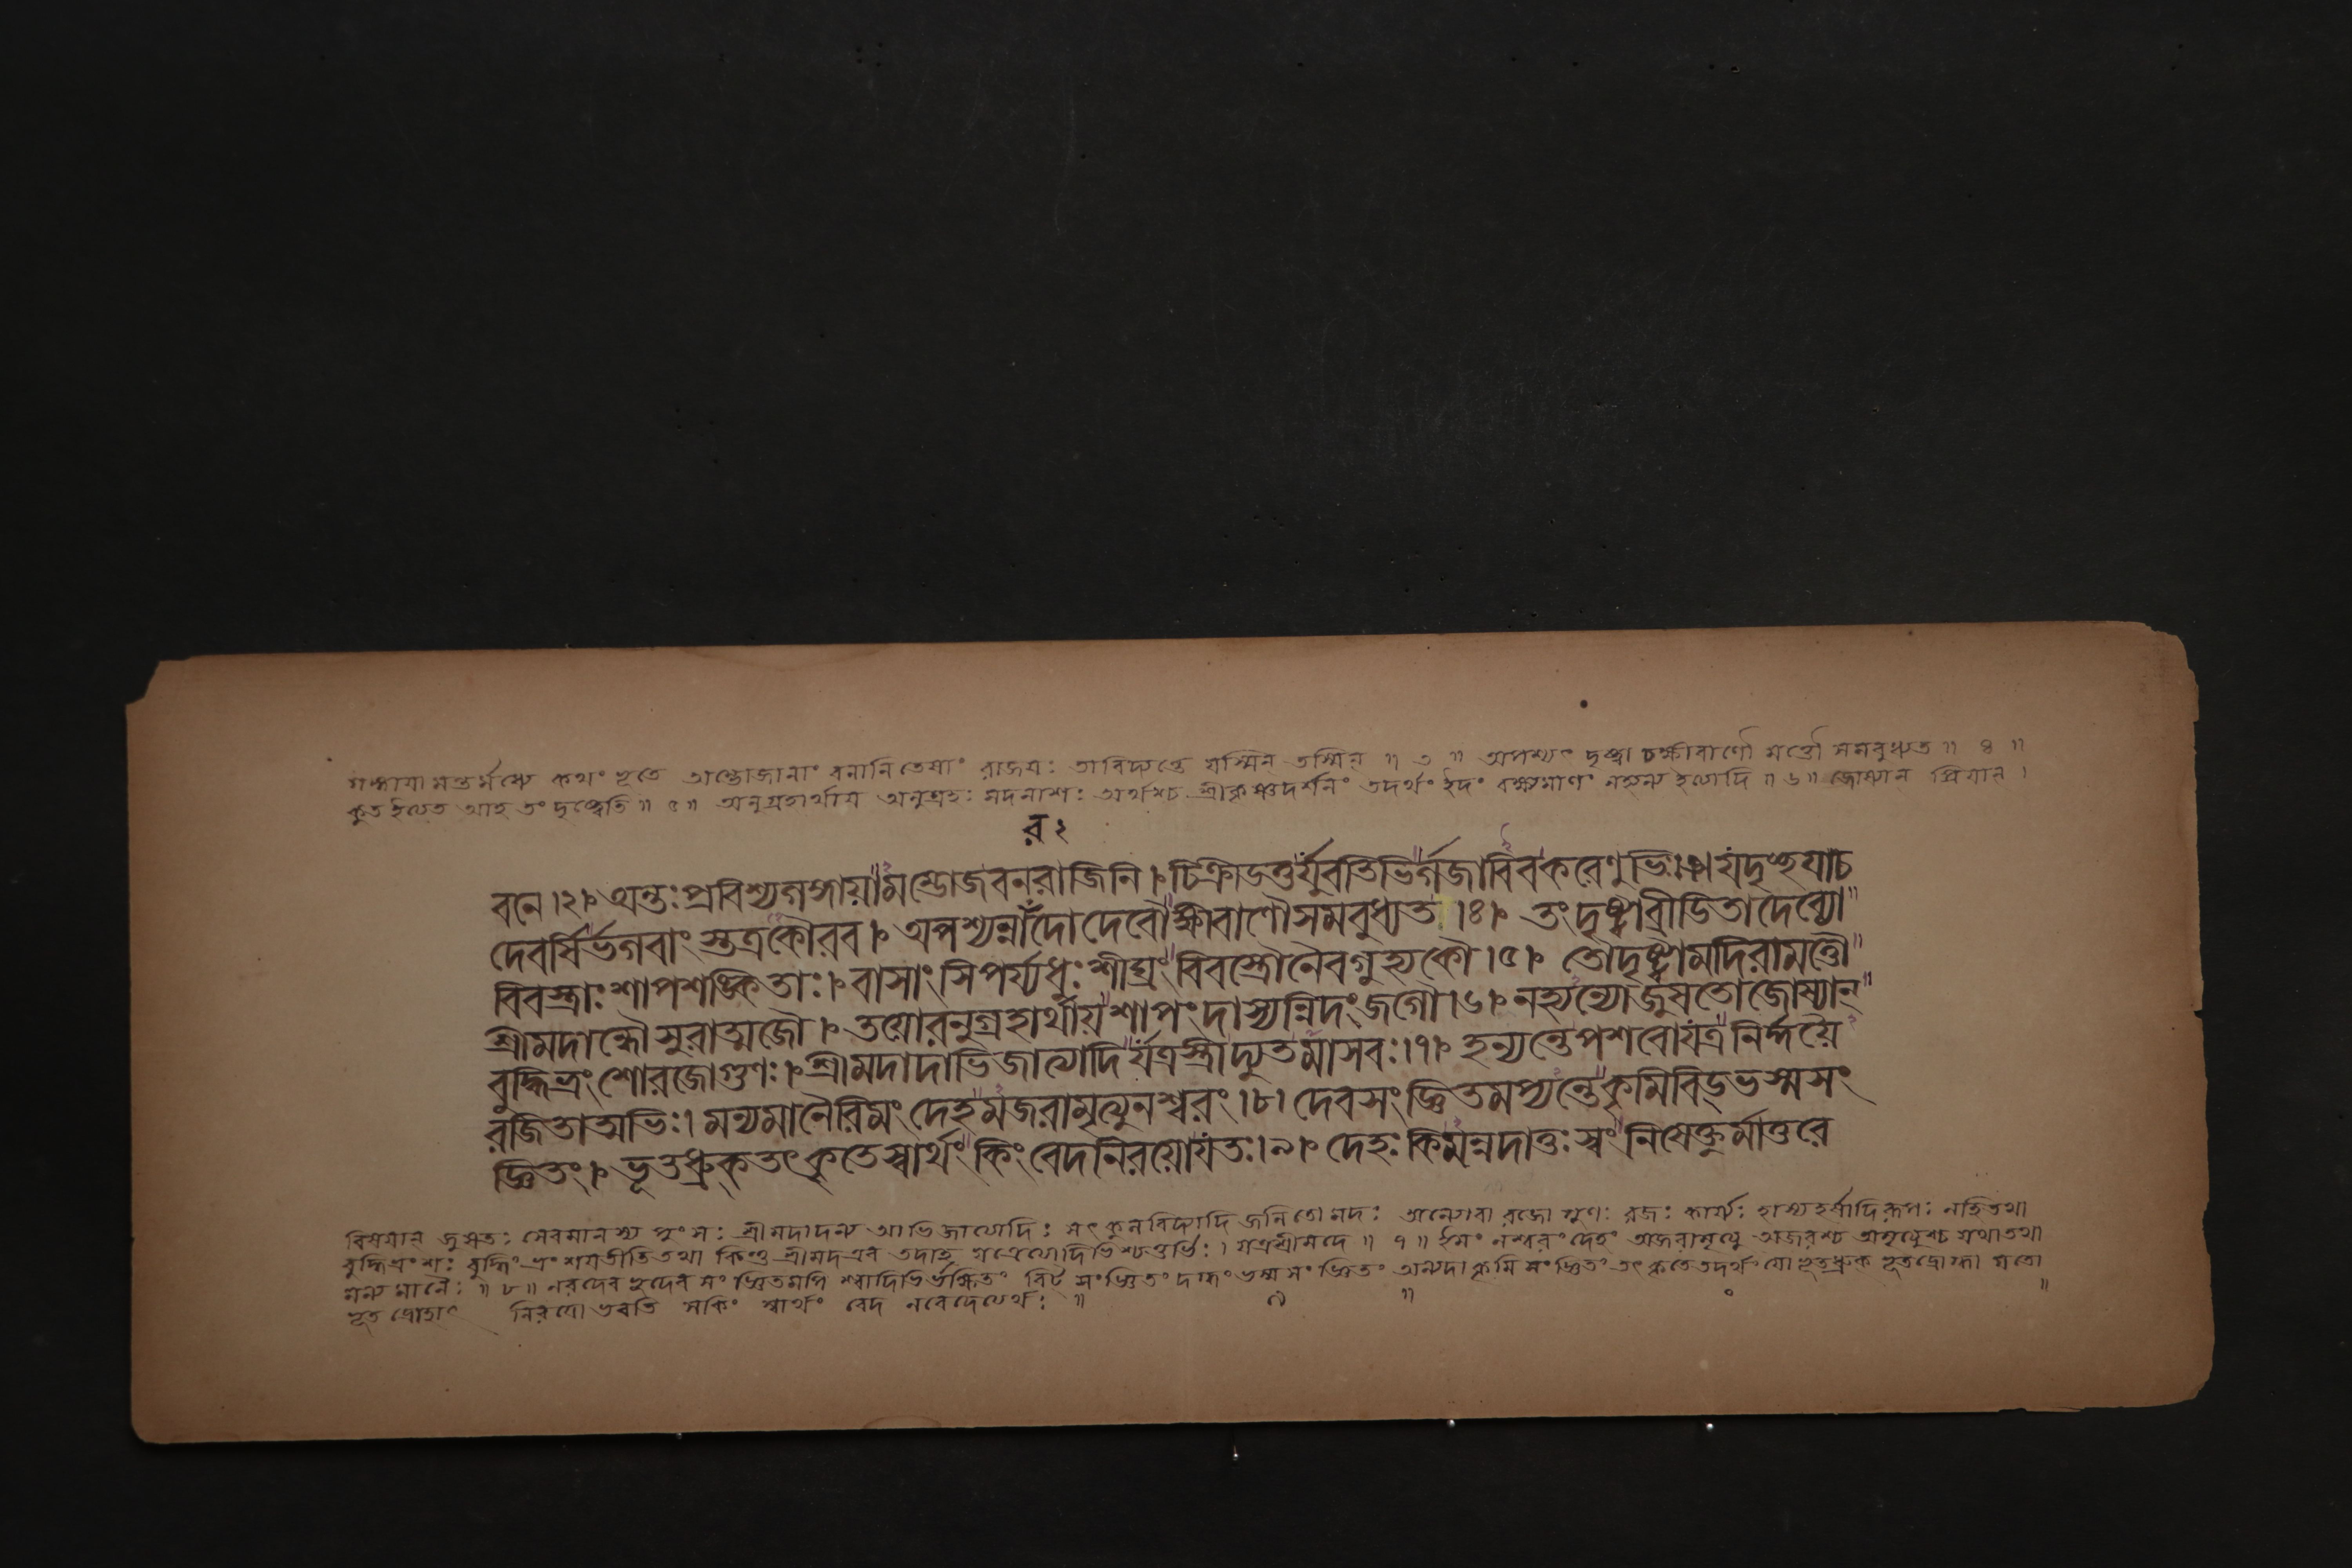 গঙ্গায়া মন্তর্মধ্যে কথং ভূতে অম্ভোজানাং বনানি তেষাং রাজয়ঃ তা বিদ্যন্তে যস্মিন্ তস্মিন্ ॥ ৩ ॥ অপশ্যৎ দৃষ্ট্বা চ ক্ষীবাণৌ মত্তৌ সমবুধ্যত ॥ ৪ ॥
কুত ইত্যেত আহ তং দৃষ্ট্বেতি ॥ ৫ ॥ অনুগ্রহার্থায় অনুগ্রহঃ মদনাশঃ অর্থশ্চ শ্রীকৃষ্ণদর্শনং তদর্থং ইদং বক্ষ্যমাণং নহ্যন্য ইত্যাদি ॥ ৬ ॥ জোষ্যান্ প্রিয়ান্ ।
র ২
বনে ।২। অন্তঃপ্রবিশ্যগঙ্গায়ামম্ভোজবনরাজিনি । চিক্রীডতুর্যুবতিভির্গজাবিবকরেণুভিঃ । যদৃচ্ছয়াচ
দেবর্ষির্ভগবাংস্তত্রকৌরব । অপশ্যন্নারদোদেবৌক্ষীবাণৌসমবুধ্যত ।৪। তংদৃষ্ট্বাব্রীডিতাদেব্যো
বিবস্ত্রাঃশাপশঙ্কিতাঃ । বাসাংসিপর্য্যধুঃশীঘ্রংবিবস্ত্রৌনৈবগুহ্যকৌ ।৫। তৌদৃষ্ট্বামদিরামত্তৌ
শ্রীমদান্ধৌসুরাত্মজৌ । তয়োরনুগ্রহার্থায়শাপংদাস্যন্নিদংজগৌ ।৬। নহ্যন্যোজুষতোজোষ্যান্
বুদ্ধিভ্রংশোরজোগুণঃ । শ্রীমদাদাভিজাত্যাদির্যত্রস্ত্রীদ্যুতমাসবঃ ।৭। হন্যন্তেপশবোযত্রনির্দ্দয়ৈ
রজিতাত্মভিঃ । মন্যমানৈরিমংদেহমজরামৃত্যুনশ্বরং ।৮। দেবসংজ্ঞিতমপ্যন্তেকৃমিবিড্ভস্মসং
জ্ঞিতং । ভূতধ্রুক্তৎকৃতেস্বার্থংকিংবেদনিরয়োযতঃ ।৯। দেহঃকিমন্নদাতুঃস্বংনিষেক্তুর্মাতুরে
বিষয়ান্ জুষতঃ সেবমানস্য পুংসঃ শ্রীমদাদন্য আভিজাত্যাদিঃ সৎকুলবিদ্যাদি জনিতো মদঃ অন্যোবা রজো গুণঃ রজঃ কার্য্যঃ হাস্যহর্ষাদিরূপঃ নহি তথা
বুদ্ধিভ্রংশঃ বুদ্ধিং ভ্রংশয়তীতি তথা কিন্তু শ্রীমদএব তদাহ যত্রেত্যাদিভিশ্চতুর্ভিঃ । যত্র শ্রীমদে ॥ ৭ ॥ ইমং নশ্বরং দেহং অজরামৃত্যু অজরশ্চ অমৃত্যুশ্চ যথা তথা
মন্যমানৈঃ ॥ ৮ ॥ নরদেব ভূদেব সংজ্ঞিতমপি শ্বাদিভির্ভক্ষিতং বিট্ সংজ্ঞিতং দগ্ধং ভস্ম সংজ্ঞিতং অন্যদা কৃমি সংজ্ঞিতং তৎকৃতে তদর্থং যো ভূতধ্রুক ভূতদ্রোগ্ধা যতো
ভূত দ্রোহাৎ নিরয়ো ভবতি স কিং স্বার্থং বেদ নবেদেত্যর্থঃ ॥ ৯ ॥